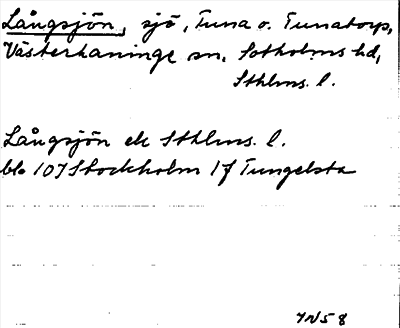 Långsjön, sjö, Tuna o. Tunatorp,
Västerhaninge sn, Sotholms hd,
Sthlms. l.
Långsjön ek Sthlms. l.
bl. 107 Stockholm 1f Tungelsta
IN58